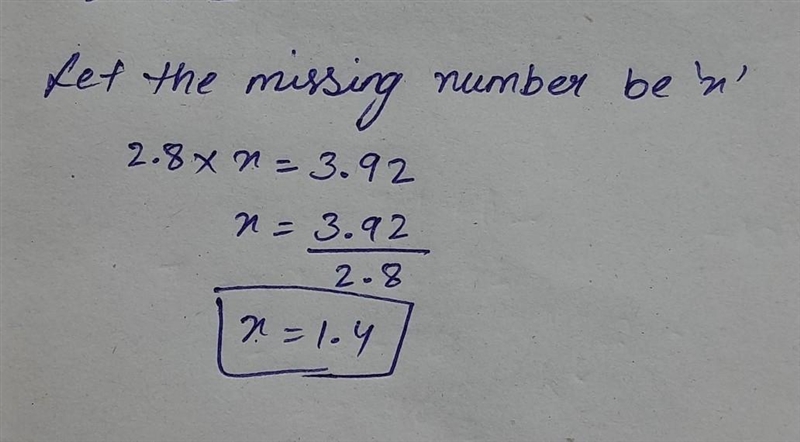 Let the missing number be 'x'
2.8 × x = 3.92
x = 3.92
2.8
x = 1.4